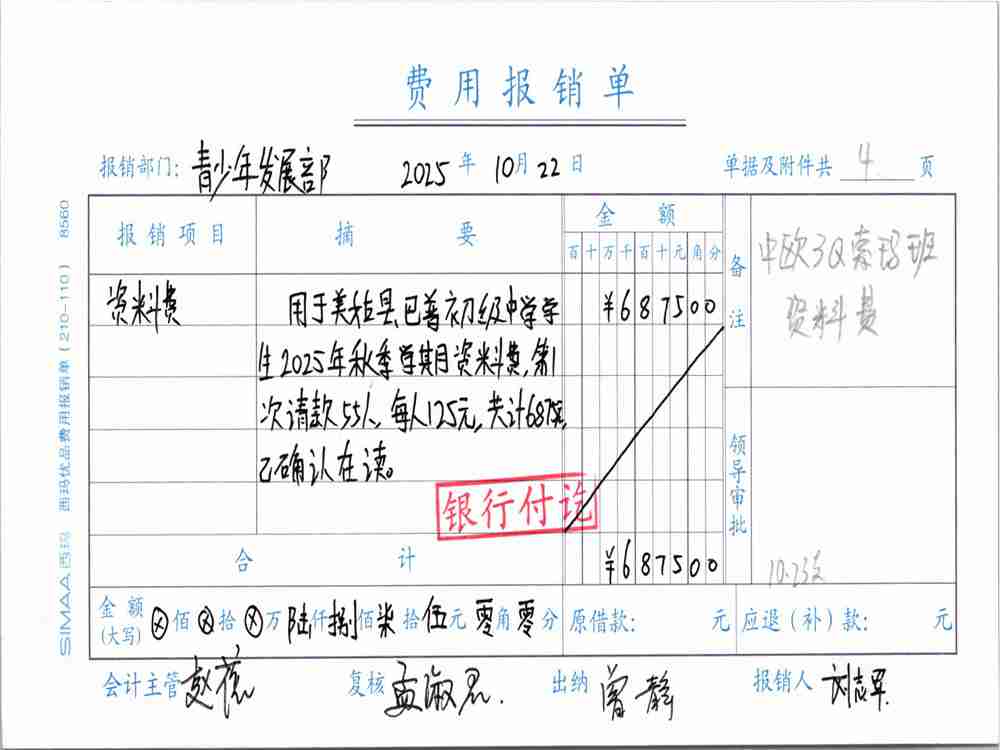 费用报销单
报销部门: 青少年发展部 2025 年 10月 22 日 单据及附件共 4 页
报销项目 摘要 金额
百十万千百十元角分
备注
中欧3Q索玛班
资料费
资料费 用于美姑县巴普初级中学学 ¥687500
生2025年秋季学期资料费,第1
次请款55人,每人125元,共计6875元,
已确认在读。
银行付讫
领导审批
合计 ¥687500
10.23支
金额(大写) ⊗佰⊗拾⊗万陆仟捌佰柒拾伍元零角零分 原借款: 元 应退(补)款: 元
会计主管 赵蕊 复核 孟淑君. 出纳 曾静 报销人 刘志军
SIMAA西玛 西玛优品费用报销单(210-110) 8560